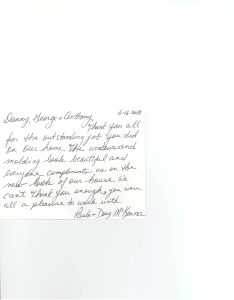 Danny, George & Anthony, 6-16-2008
Thank you all
for the outstanding job you did
on our home. The windows and
molding look beautiful and
everyone compliments us on the
new look of our house. We
can't thank you enough, you were
all a pleasure to work with.
Paula & Doug